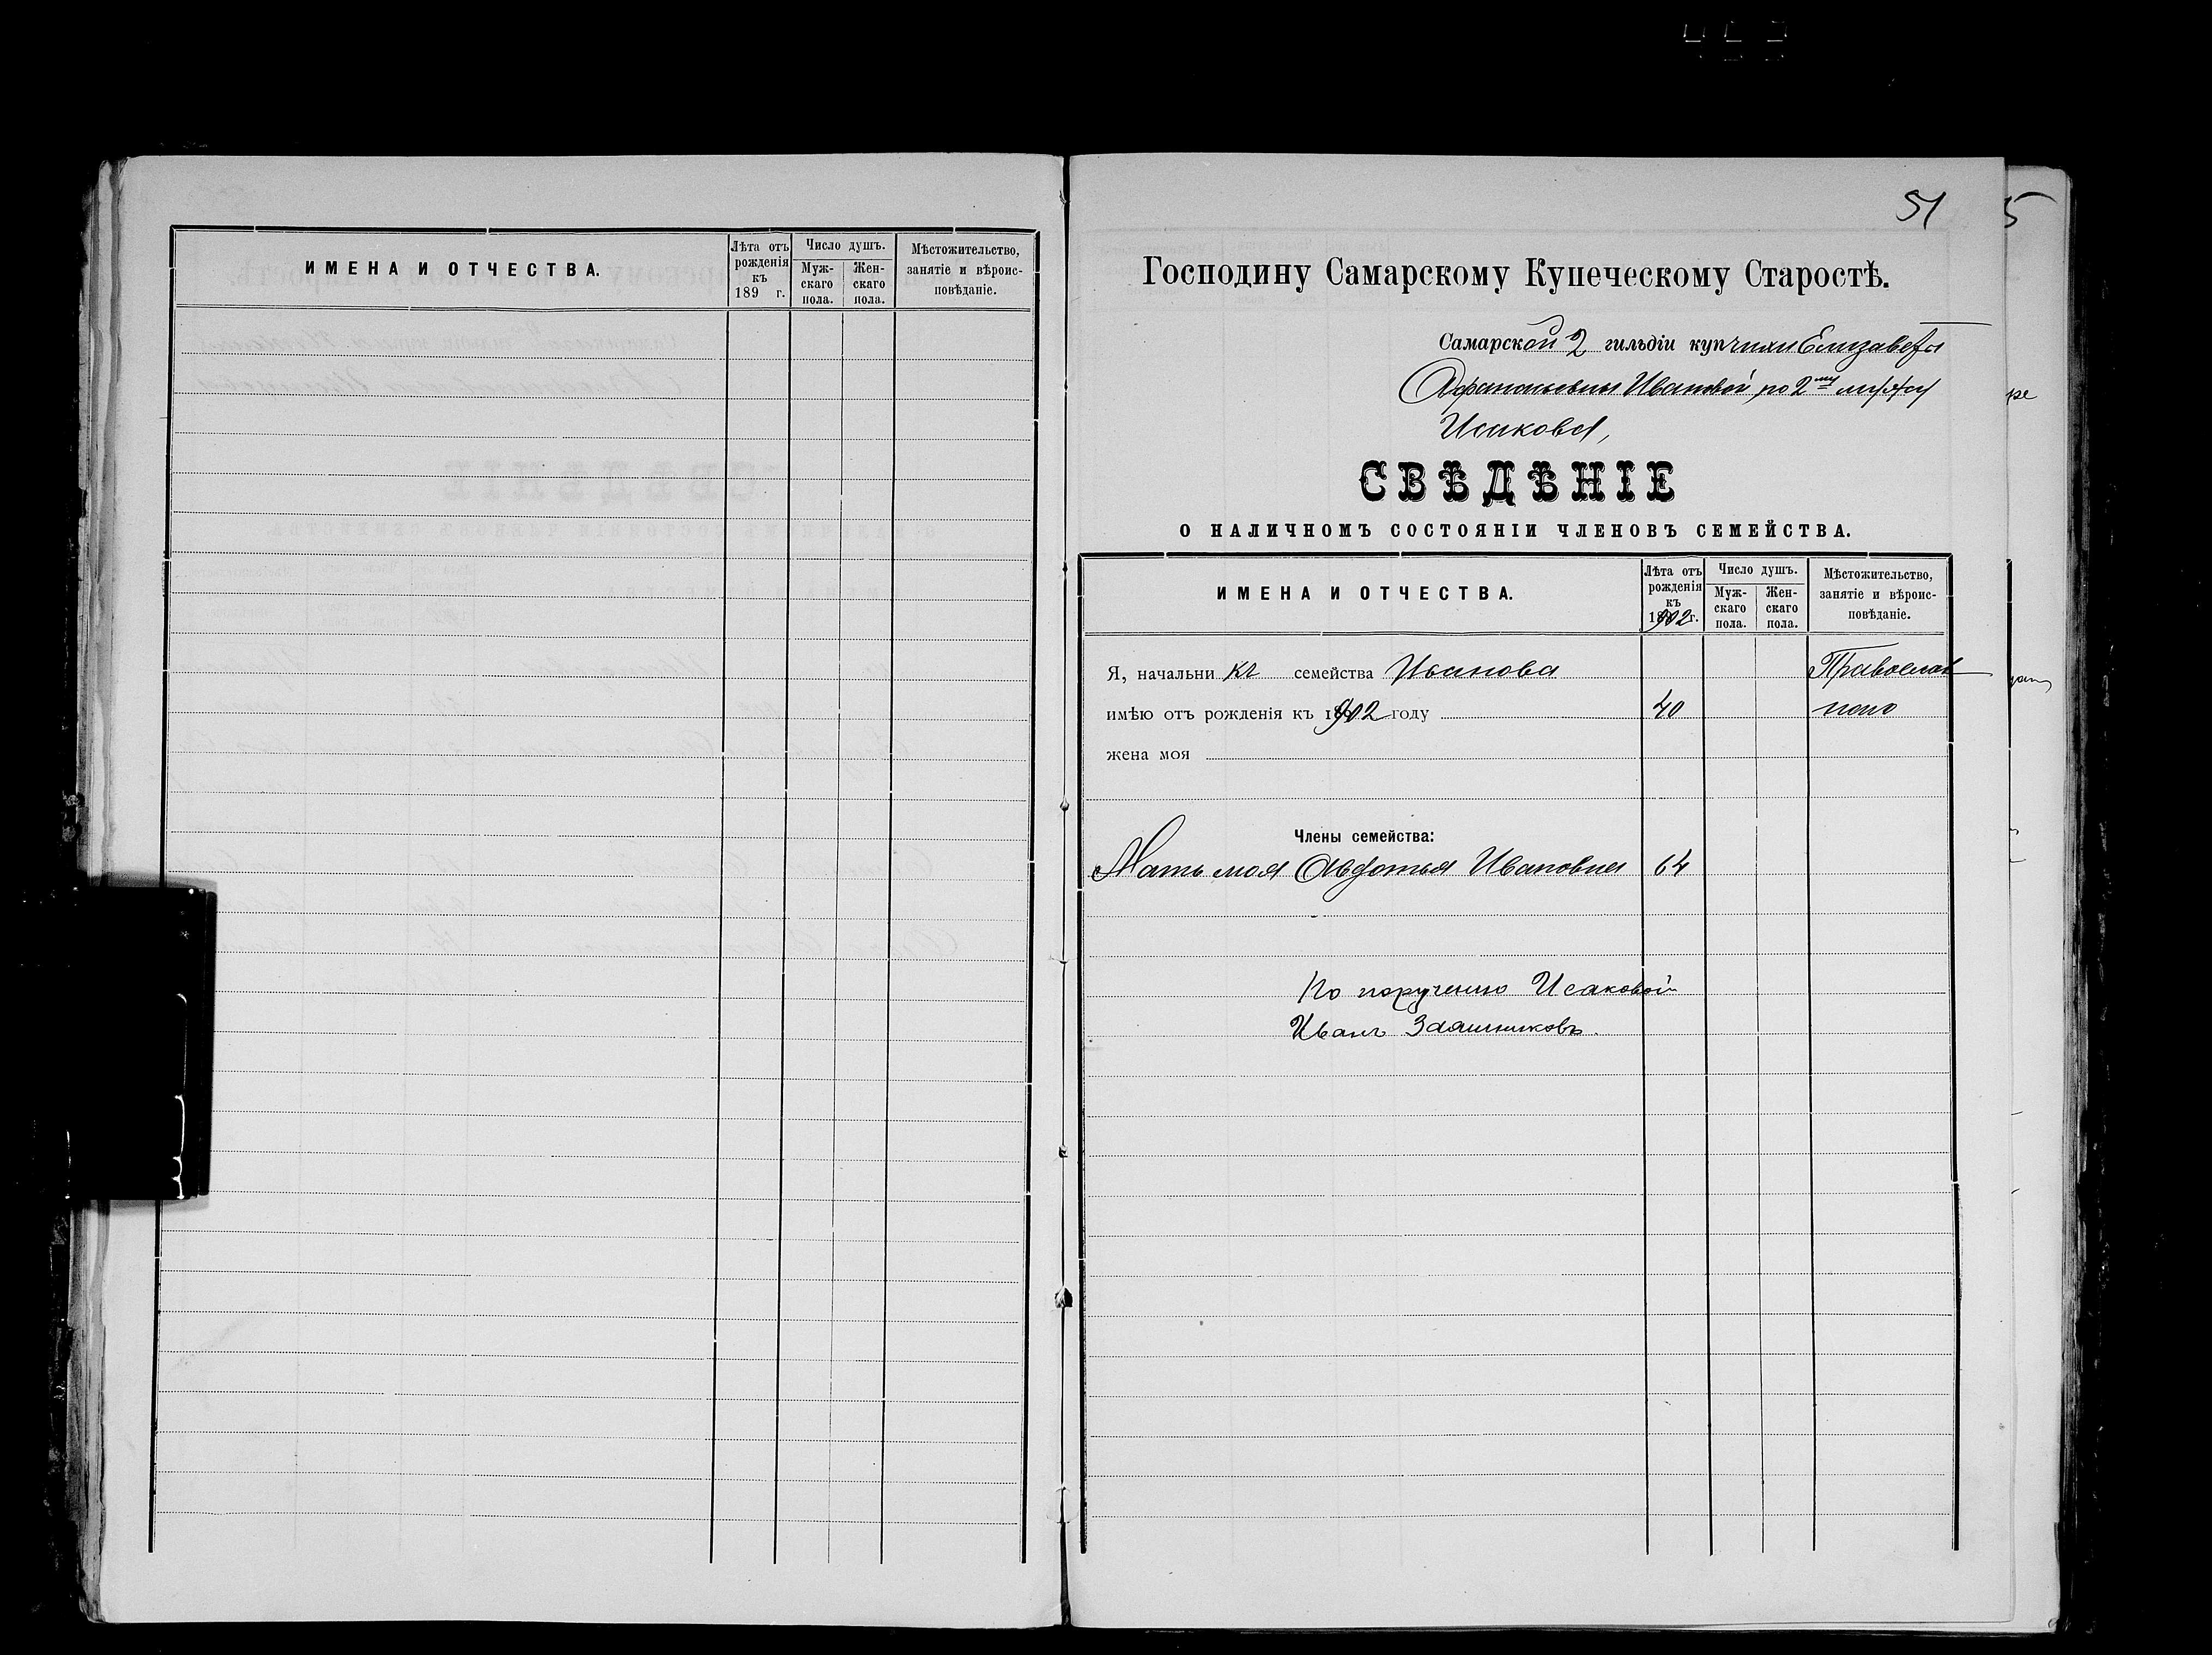 ИМЕНА И ОТЧЕСТВА.
Лѣта отъ рожденія къ 189 г.
Число душъ.
Мужскаго пола.
Женскаго пола.
Мѣстожительство, занятіе и вѣроисповѣданіе.
51
Господину Самарскому Купеческому Старостѣ.
Самарской 2 гильдіи купчихи Елизаветы
Афанасьевны Ивановой, по 2му мужу
Исакова,
СВѢДѢНІЕ
О НАЛИЧНОМЪ СОСТОЯНІИ ЧЛЕНОВЪ СЕМЕЙСТВА.
ИМЕНА И ОТЧЕСТВА.
Лѣта отъ
рожденія
къ
1902 г.
Число душъ.
Муж-
скаго
пола.
Жен-
скаго
пола.
Мѣстожительство,
занятіе и вѣроис-
повѣданіе.
Я, начальникъ семейства Иванова Православ
имѣю отъ рожденія къ 1902 году 40
жена моя
Члены семейства:
Мать моя Авдотья Ивановна 64
По порученію Исаковой
Иванъ